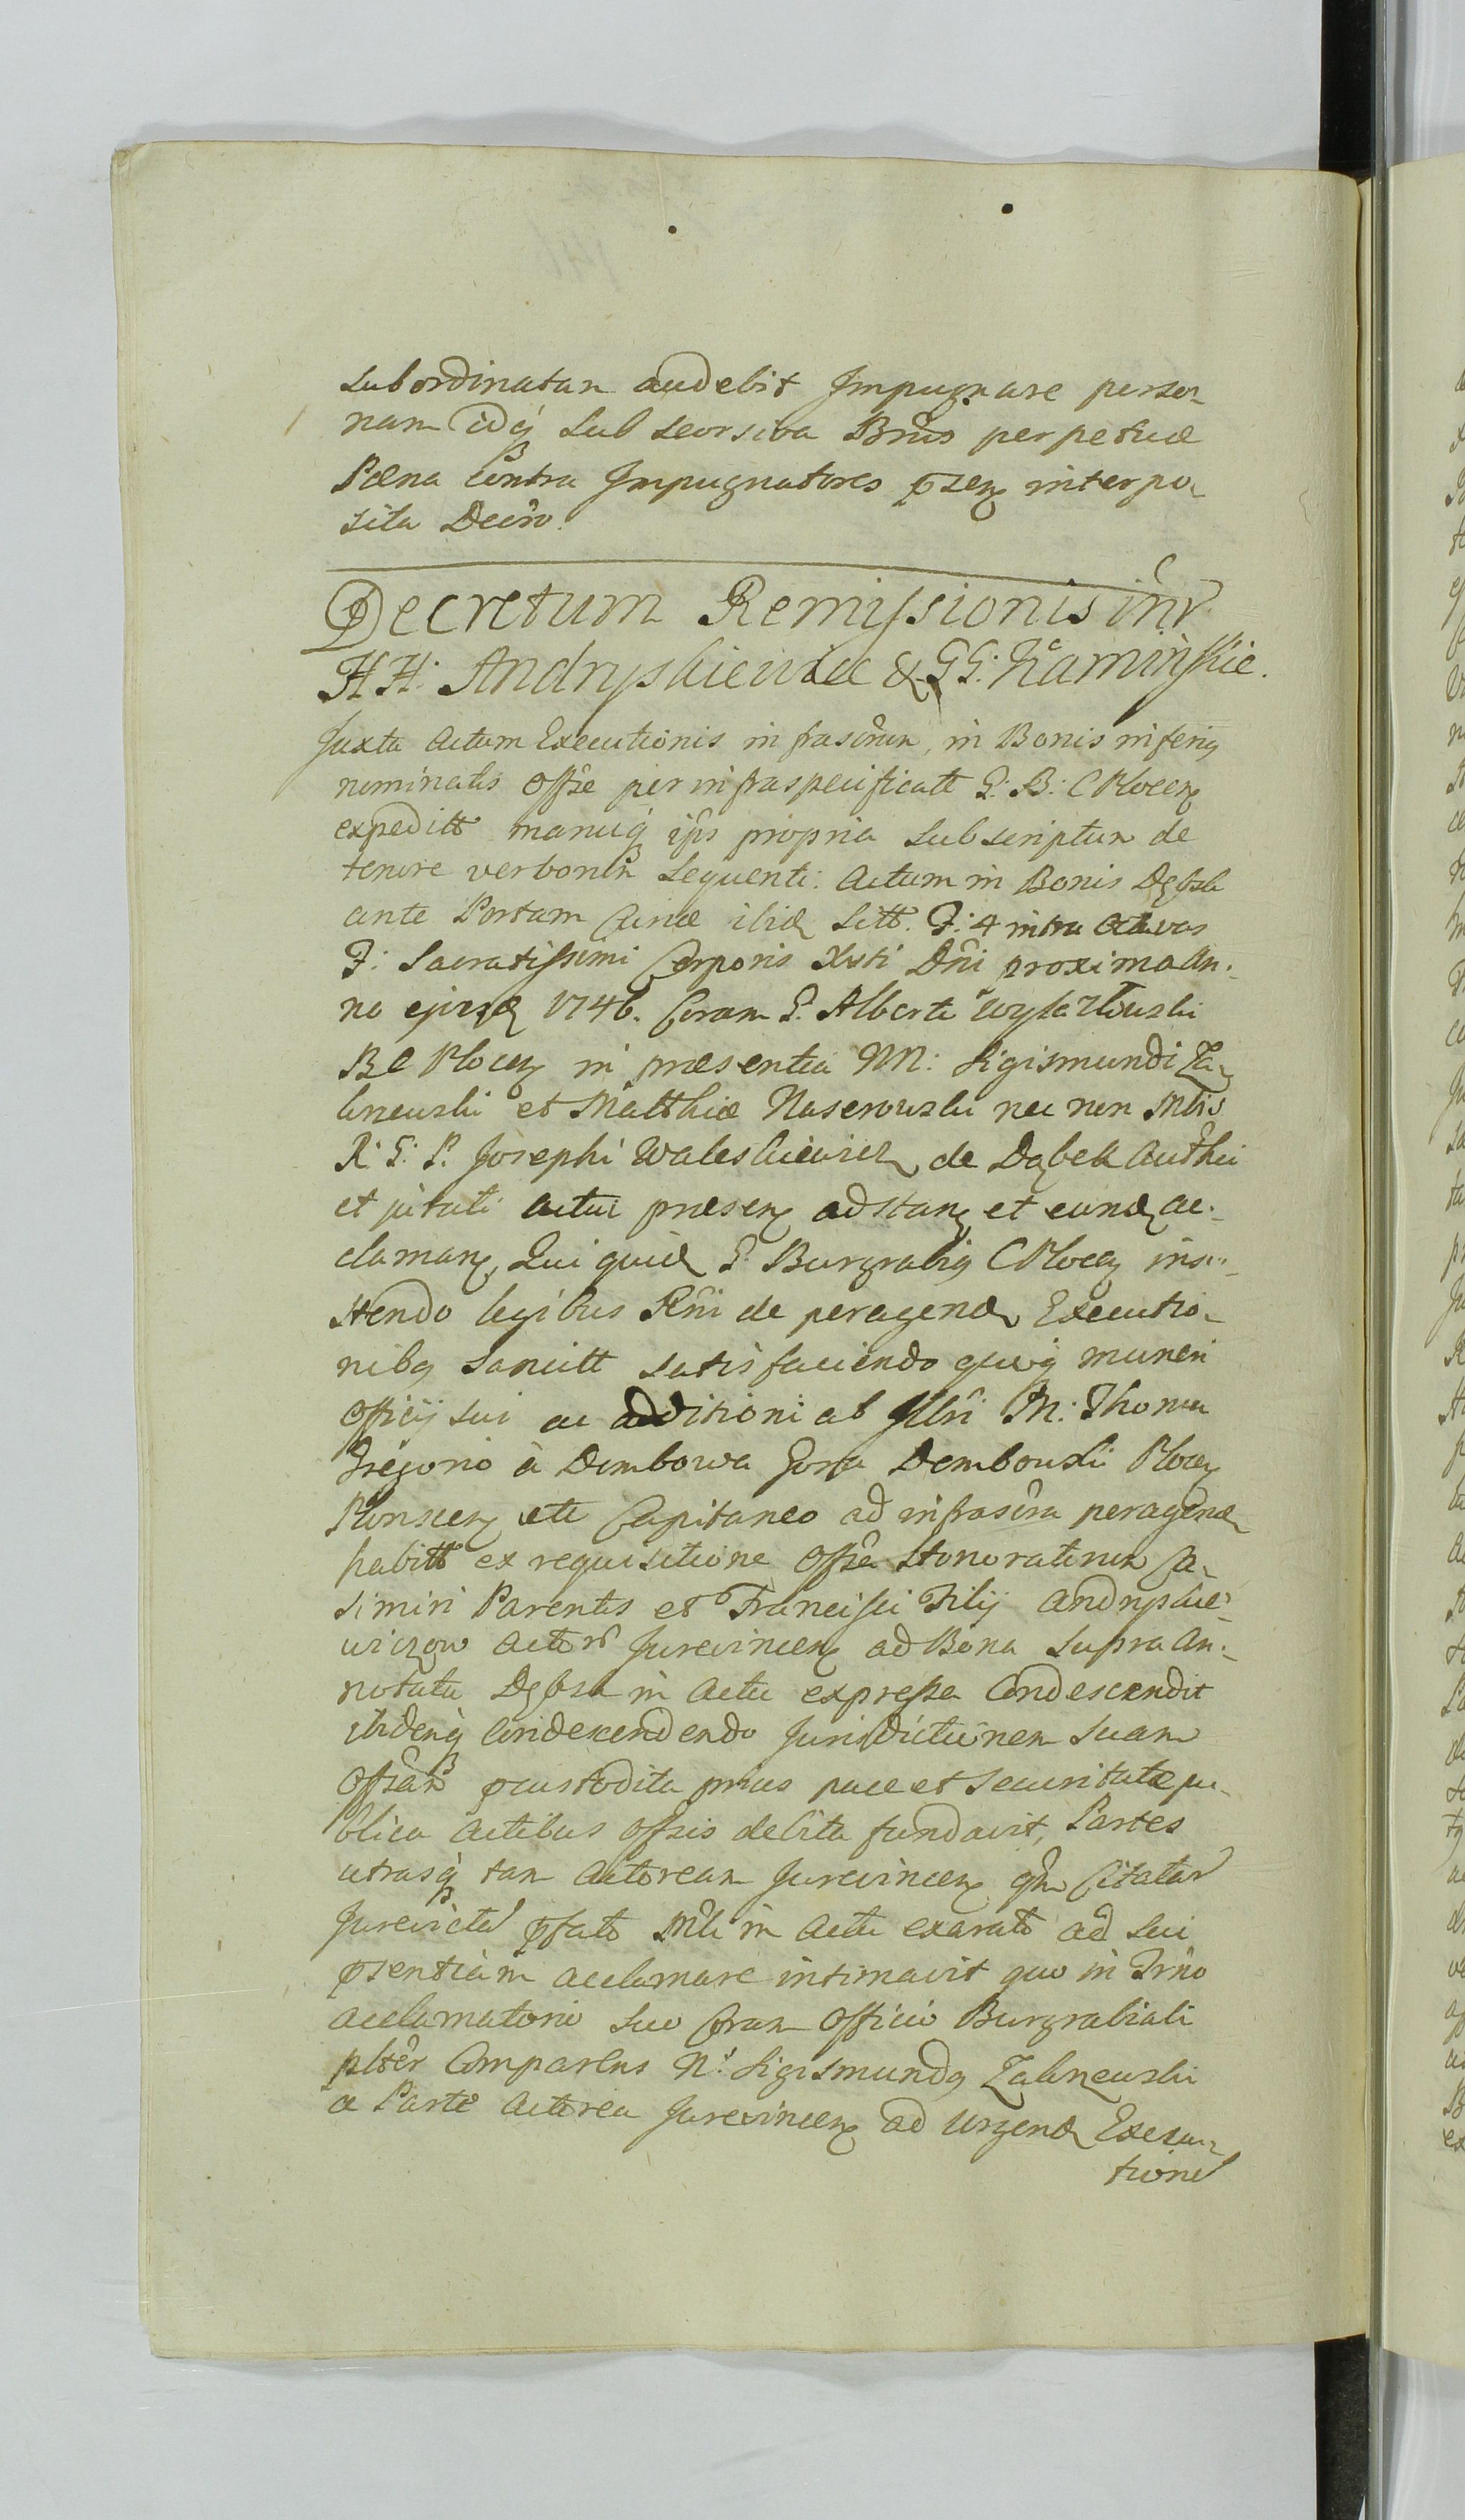 subordinatam audebit Impugnare perso-
nam idq sub seorsiva Bnis perpetuæ
Pæna contra Impugnatores psen interpo-
sita Decro.
Decretum Remissionis inr
HH: Andryskiewicze & GG: Kamińskie.
Juxta Actum Executionis infrascrum, in Bonis inferiq
nominatis offse per infraspecificatt G: B: C Plocen
expeditt manuq ips propria subscriptum de
tenore verborum sequenti: Actum in Bonis Dębsk
ante Portam Curiæ ibid sitt. F: 4 intra Octavas
F: Sacratissimi Corporis Xsti Dni proxima An-
no ejusd 1746. Coram G. Alberto
B C Plocen in præsentia NN: Sigismundi Za-
et Matthiæ Naserowski nec non Mtis
R: G: P. Josephi Waleskiewicz de Dąbek authci
et jurati actui præsen adstan et eund ac-
claman, Qui quid G: Burgrabiq C Plocen insi-
stendo legibus Rni de peragend Executio-
nibq sancitt satisfaciendo quoq muneri
Officij sui ac additioni ab Illri M: Thoma
Gregorio à Dembowa Gora Dembowski Plocen
Plonscen etc Capitaneo ad infrascra peragend
habitt ex requisitione offsa Honoratorum Ca-
simiri Parentis et Francisci Filij Andryskie-
wiczow Actor Jurevincen ad Bona supra An-
notata Dębsk in Actu expressa Condescendit
ibidemq Condescendendo Jurisdictionem suam
Offsam pcustodita prius pace et securitate pu-
blica Actibus offsis debita fundavit, Partes
utrasq tam Actoream Jurevincen qm Citatam
Jurevictam pfato Mtli in Actu exarato ad sui
psentiam acclamare intimavit quo in Trno
acclamatorio suo Coram Officio Burgrabiali
plter Comparens N: Sigismundq
a Parte Actorea Jurevincen ad urgend Execu-
tionem